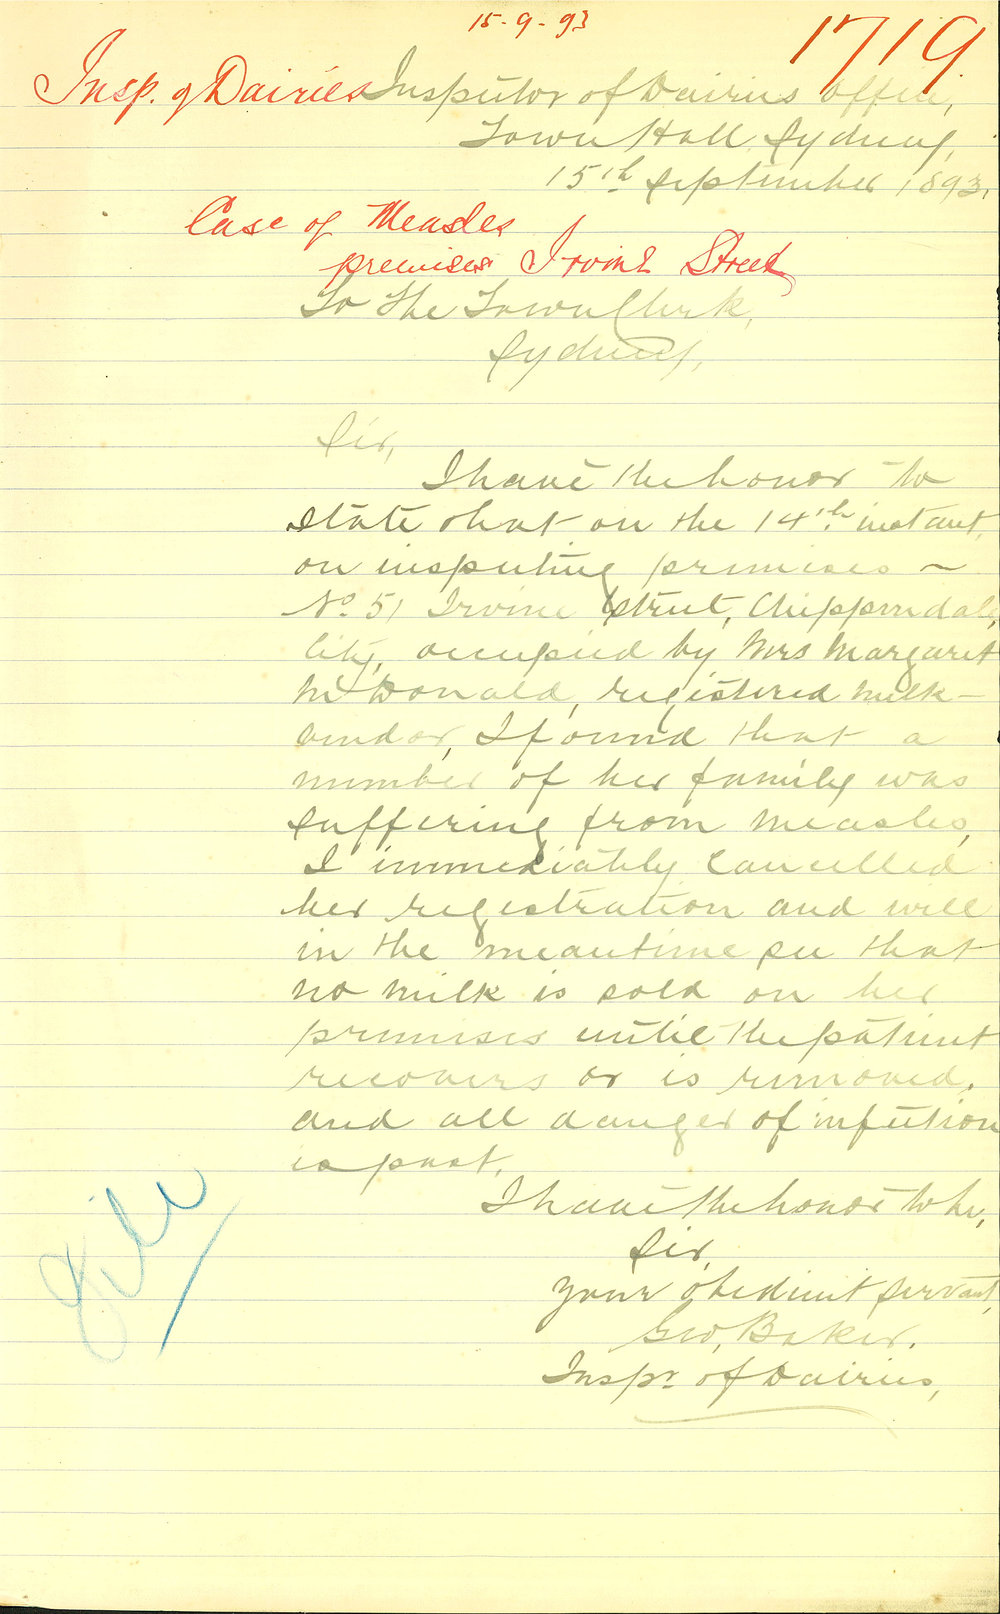 15-9-93
1719.
Insp. of Dairies
Inspector of Dairies Office,
Town Hall, Sydney,
15th September 1893.
Case of Measles
premises Irvine Street
To The Town Clerk,
Sydney,
Sir,
I have the honor to
state that on the 14th instant,
on inspecting premises ~
No 51 Irvine Street, Chippendale,
City, occupied by Mrs Margaret
McDonald, registered milk-
vendor, I found that a
number of her family was
suffering from measles,
I immediately cancelled
her registration and will
in the meantime see that
no milk is sold on her
premises until the patient
recovers or is removed,
and all danger of infection
is past.
I have the honor to be,
Sir,
your obedient servant,
Geo, Baker.
Inspr. of Dairies,
File